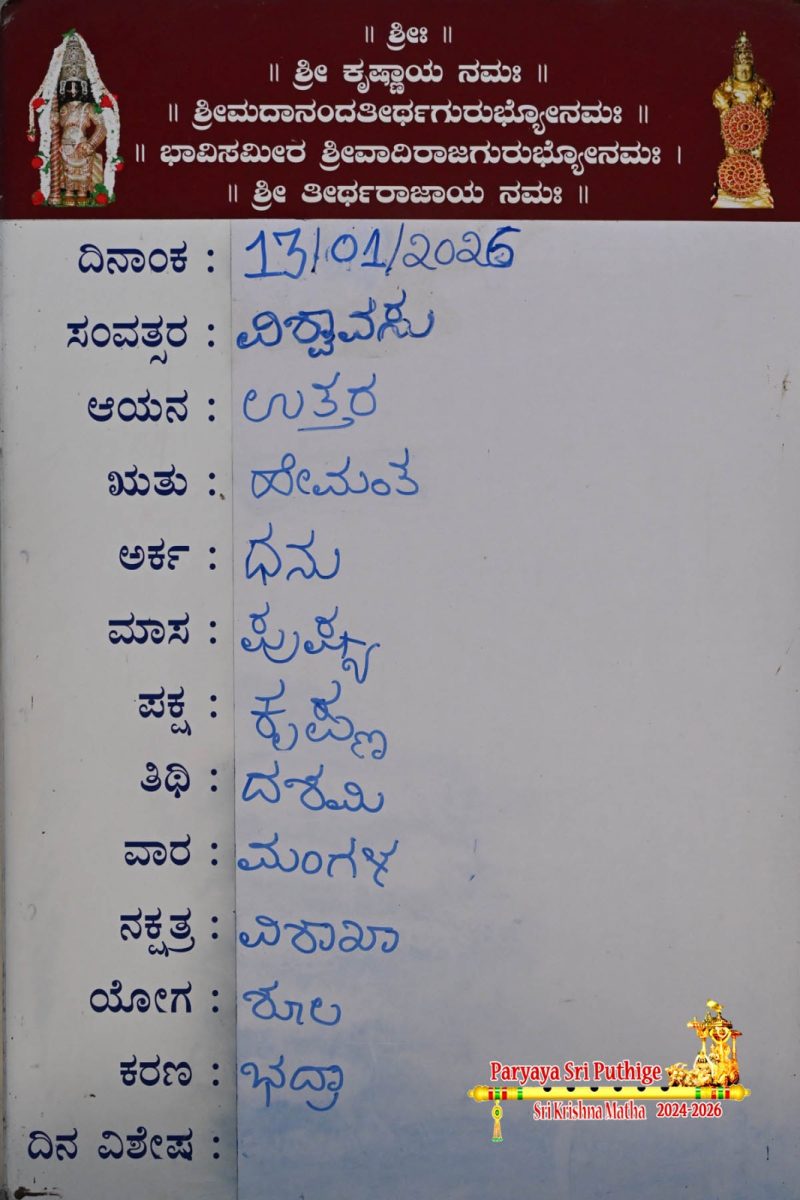 ॥ ಶ್ರೀಃ ॥
॥ ಶ್ರೀ ಕೃಷ್ಣಾಯ ನಮಃ ॥
॥ ಶ್ರೀಮದಾನಂದತೀರ್ಥಗುರುಭ್ಯೋನಮಃ ॥
॥ ಭಾವಿಸಮೀರ ಶ್ರೀವಾದಿರಾಜಗುರುಭ್ಯೋನಮಃ ।
॥ ಶ್ರೀ ತೀರ್ಥರಾಜಾಯ ನಮಃ ॥
ದಿನಾಂಕ : 13/01/2026
ಸಂವತ್ಸರ : ವಿಶ್ವಾವಸು
ಆಯನ : ಉತ್ತರ
ಋತು : ಹೇಮಂತ
ಅರ್ಕ : ಧನು
ಮಾಸ : ಪುಷ್ಯ
ಪಕ್ಷ : ಕೃಷ್ಣ
ತಿಥಿ : ದಶಮಿ
ವಾರ : ಮಂಗಳ
ನಕ್ಷತ್ರ : ವಿಶಾಖಾ
ಯೋಗ : ಶೂಲ
ಕರಣ : ಭದ್ರಾ
ದಿನ ವಿಶೇಷ :
Paryaya Sri Puthige
Sri Krishna Matha 2024-2026